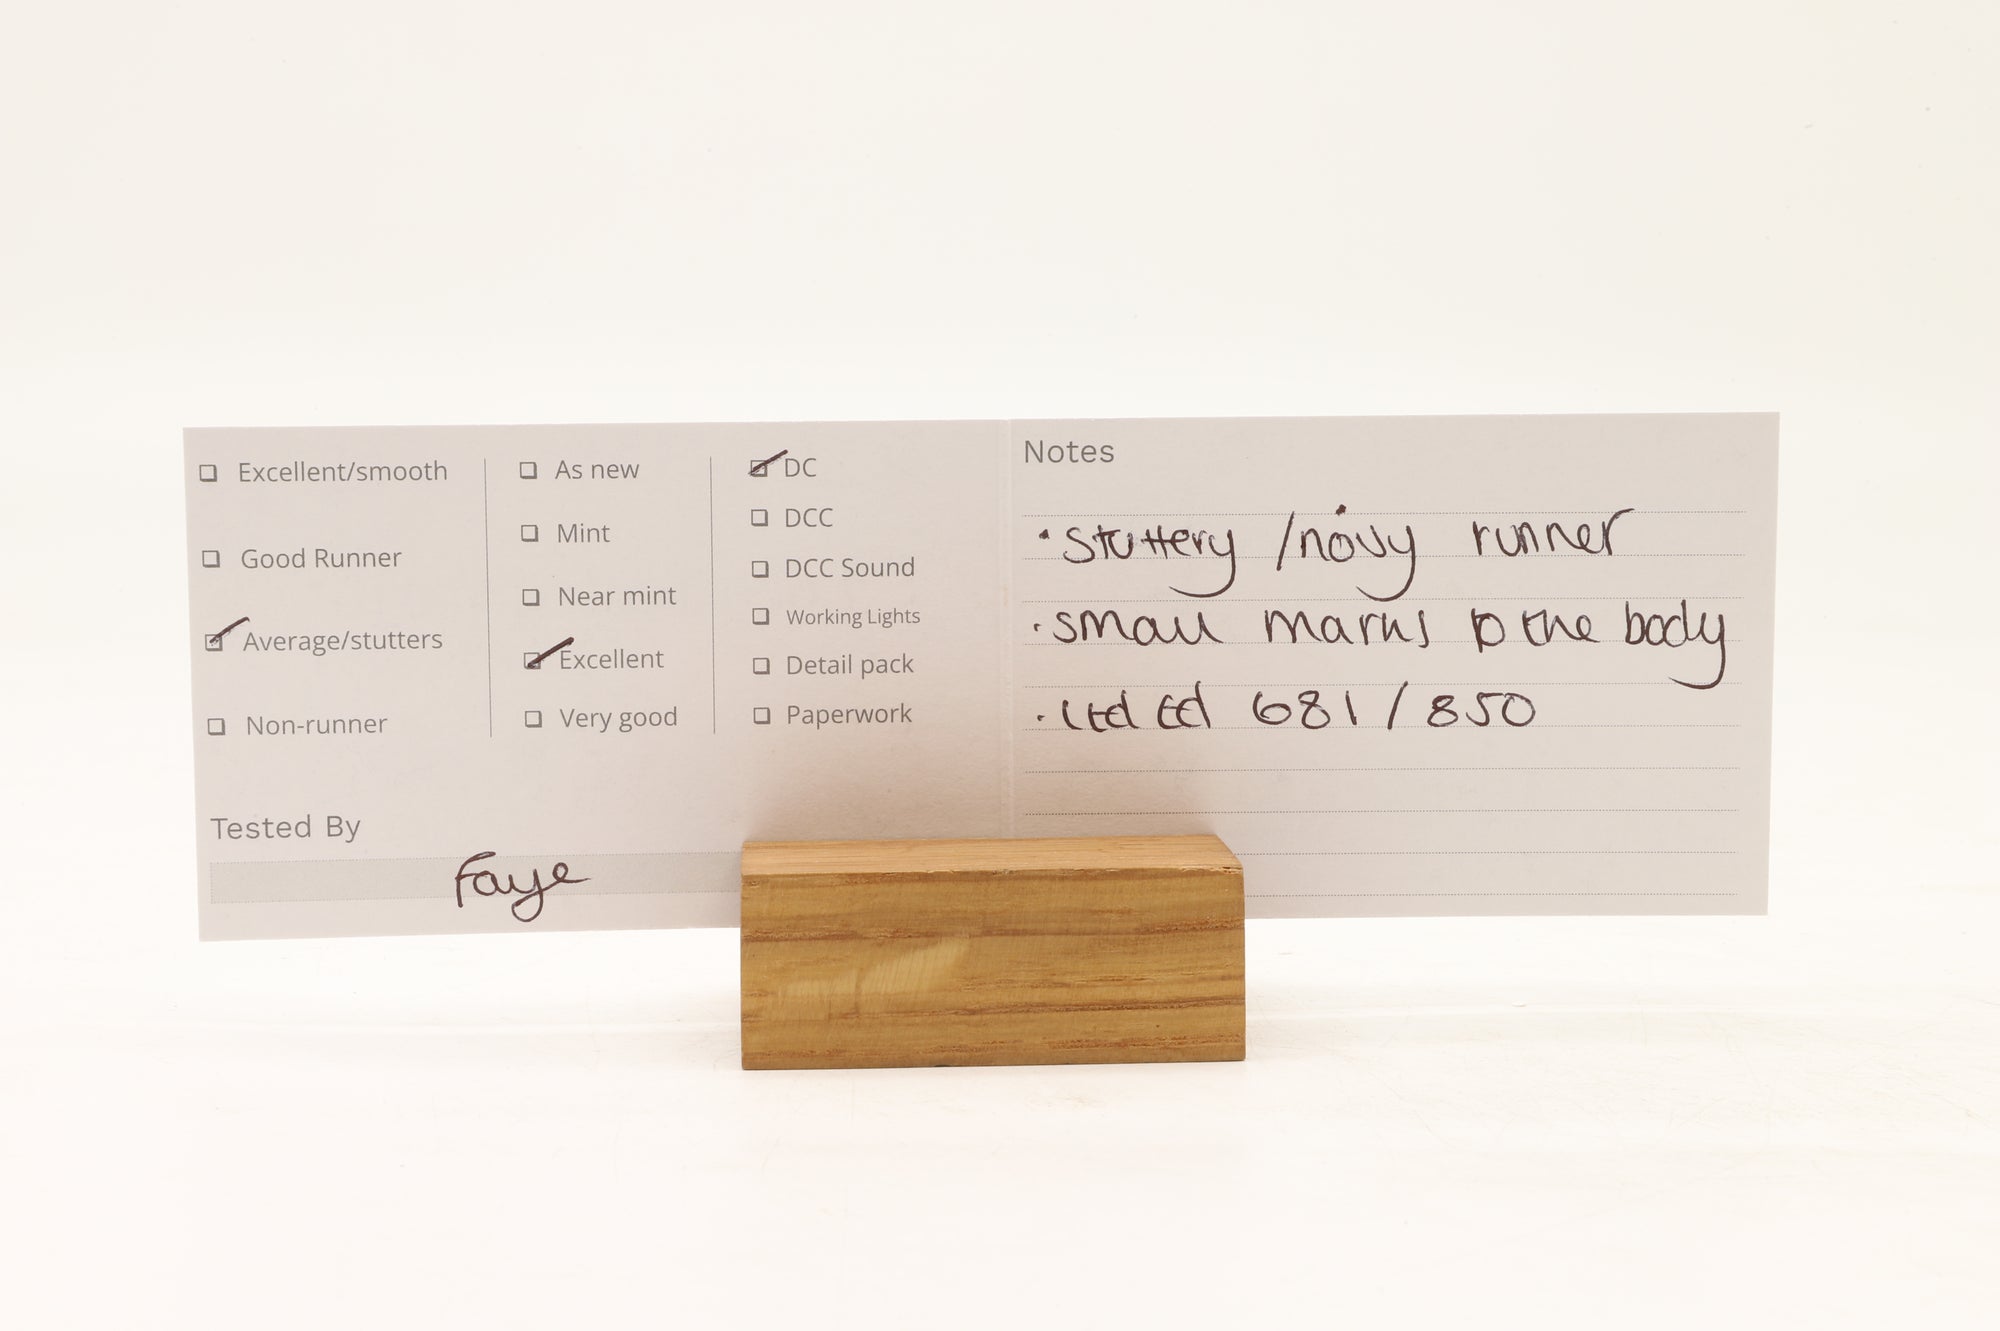 ☐ Excellent/smooth
☐ Good Runner
☑ Average/stutters
☐ Non-runner
☐ As new
☐ Mint
☐ Near mint
☑ Excellent
☐ Very good
☑ DC
☐ DCC
☐ DCC Sound
☐ Working Lights
☐ Detail pack
☐ Paperwork
Tested By
Faye
Notes
· Stuttery /noisy runner
· small marks to the body
· Ltd Ed 681 / 850